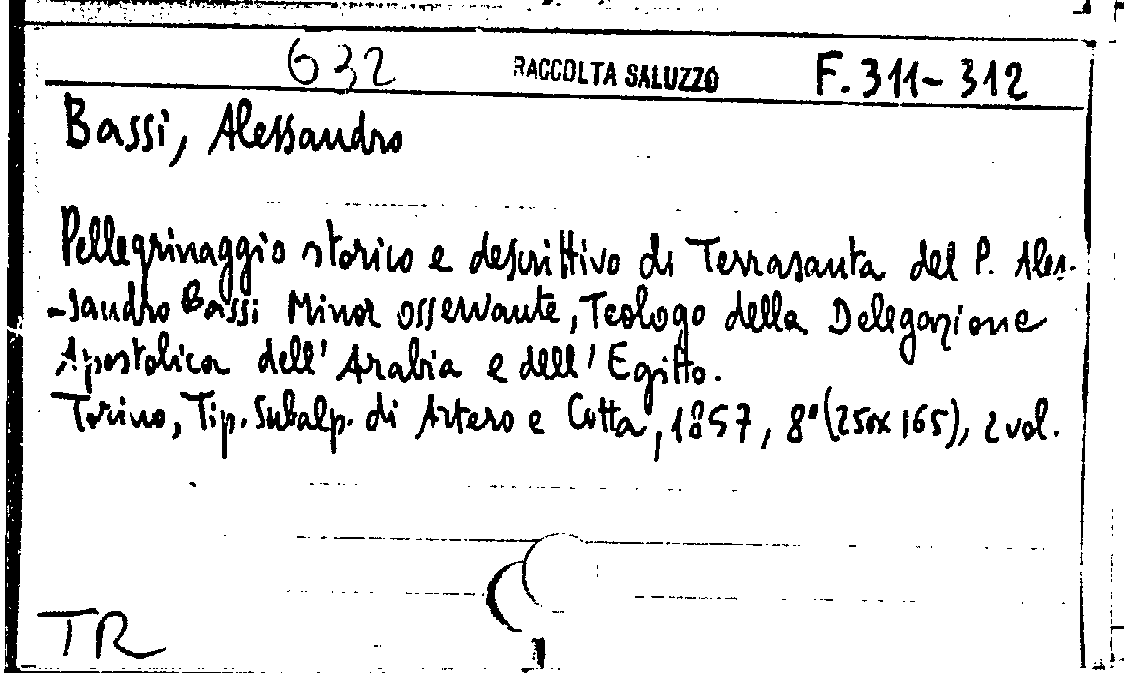 632 RACCOLTA SALUZZO F. 311-312
Bassi, Alessandro
Pellegrinaggio storico e descrittivo di Terrasanta del P. Ales-
-sandro Bassi Minor osservante, Teologo della Delegazione
Apostolica dell'Arabia e dell'Egitto.
Torino, Tip. Subalp. di Artero e Cotta, 1857, 8° (250x165), 2 vol.
TR